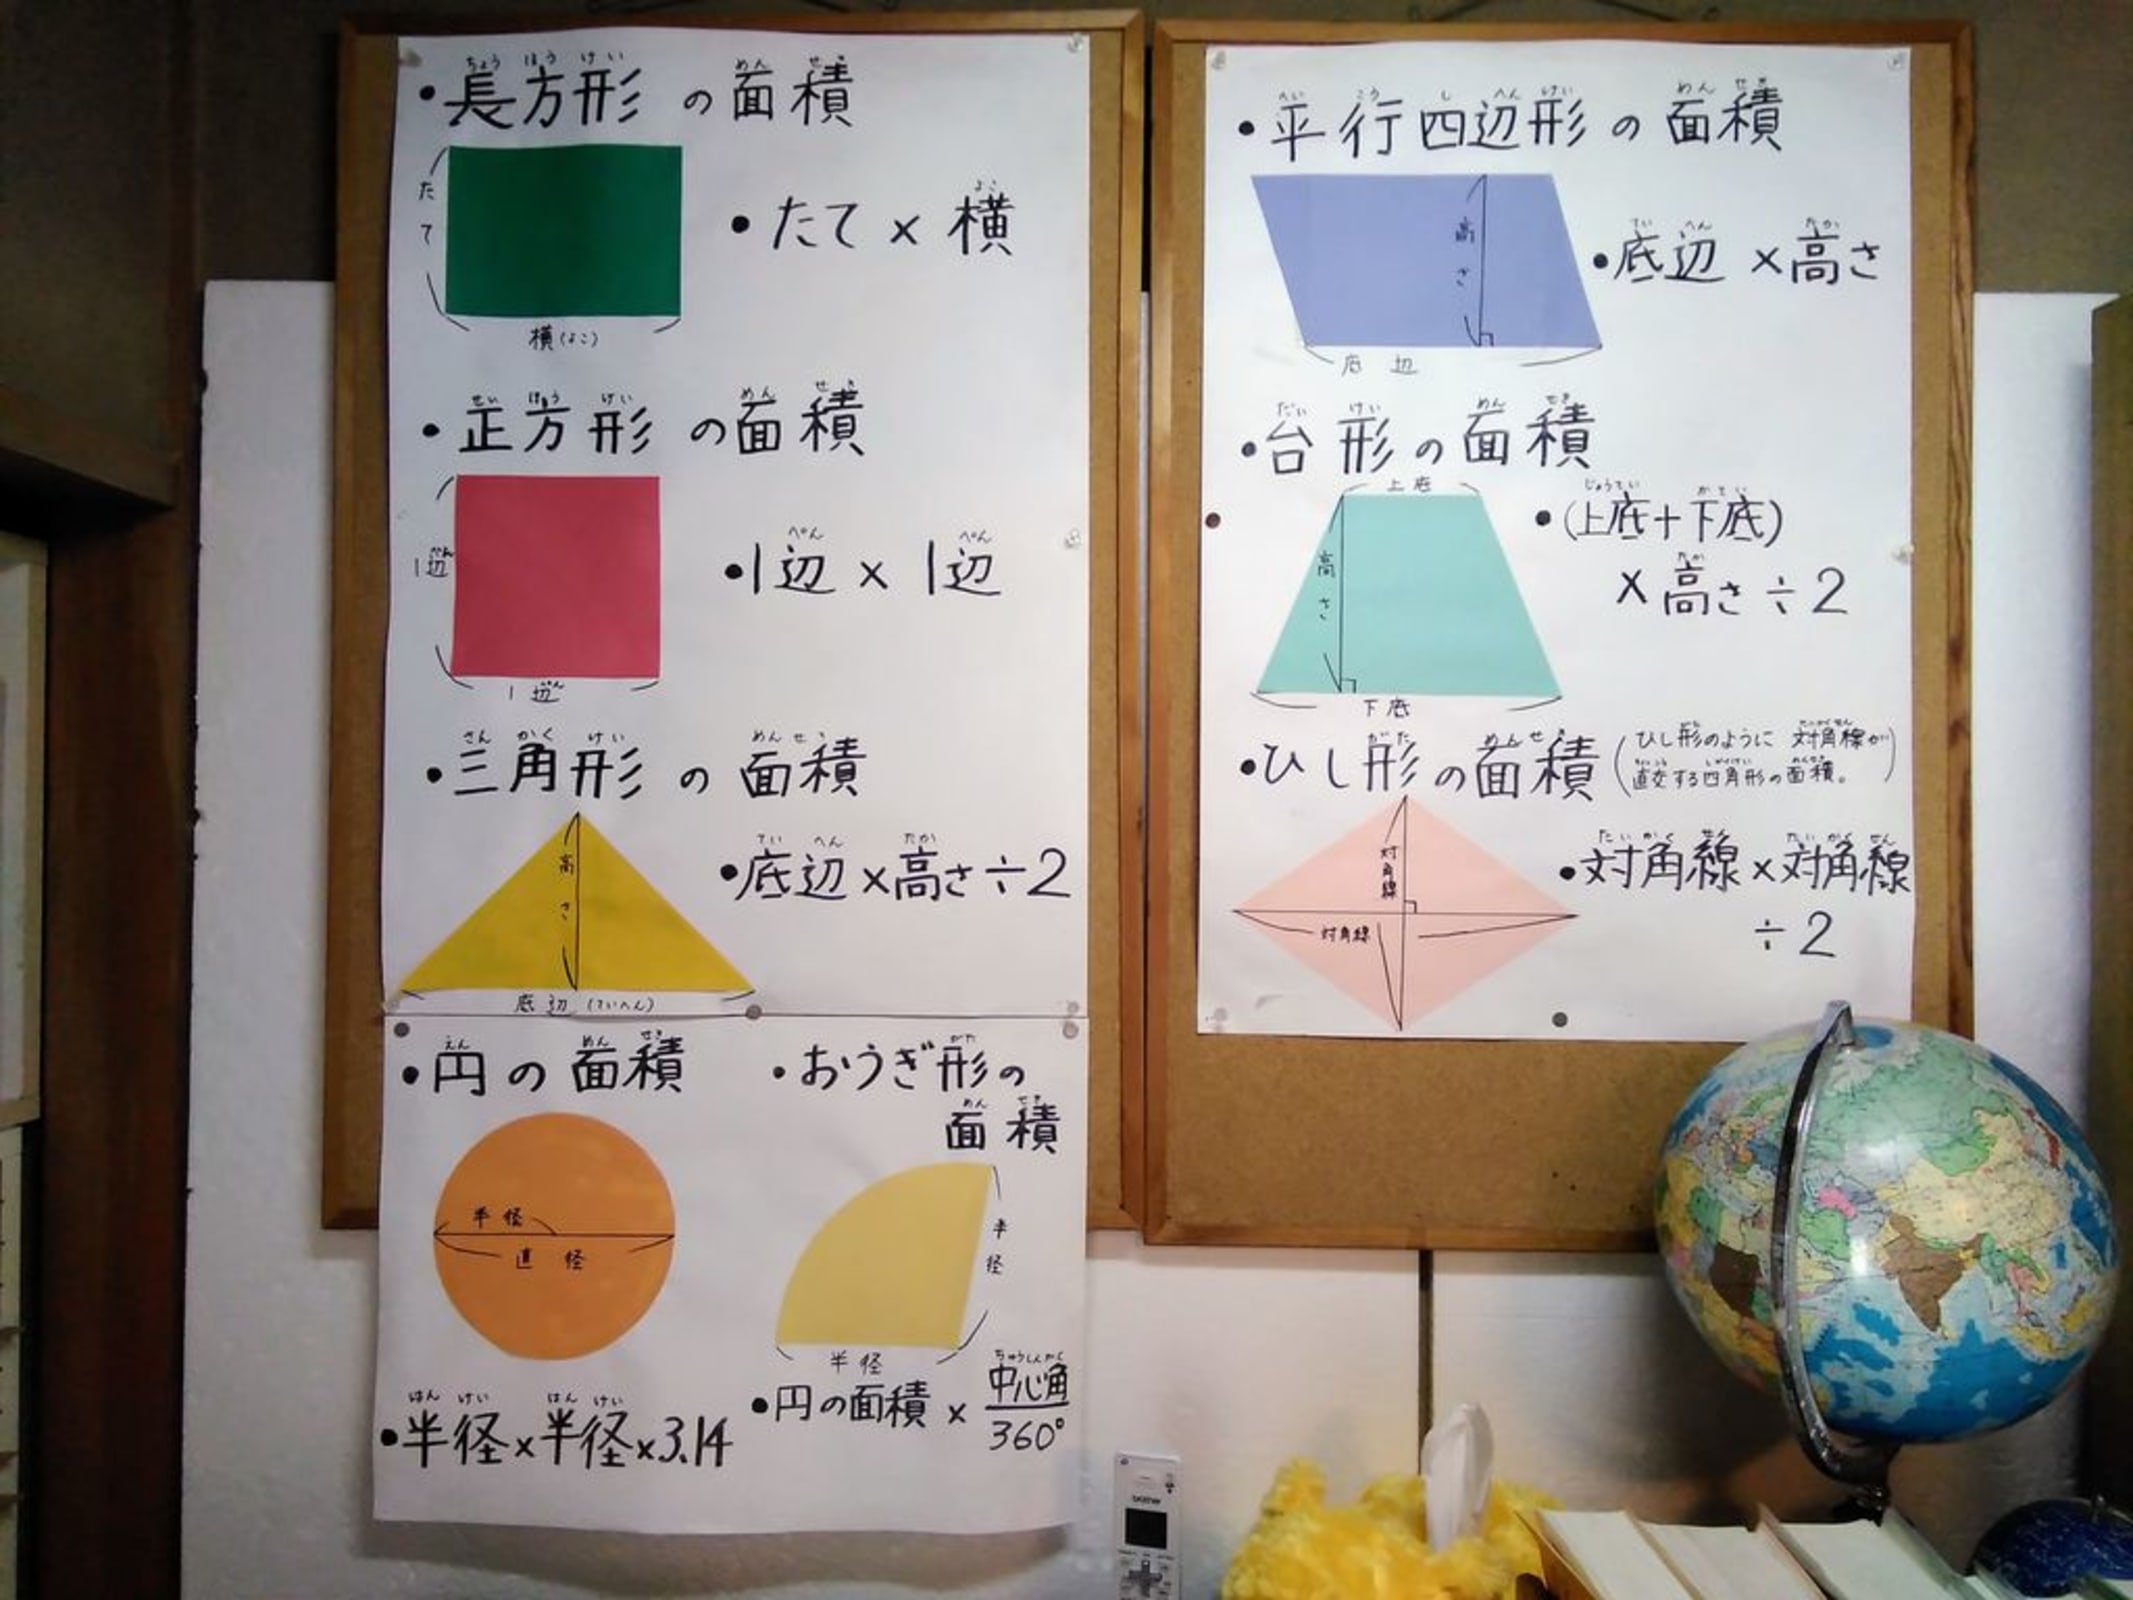 ・長方形の面積
ちょうほうけい めんせき
たて
横(よこ)
・たて×横
よこ
・正方形の面積
せいほうけい めんせき
1辺
へん
1辺
へん
・1辺×1辺
へん へん
・三角形の面積
さんかくけい めんせき
高さ
底辺(ていへん)
・底辺×高さ÷2
ていへん たか
・円の面積
えん めんせき
半径
直径
・半径×半径×3.14
はんけい はんけい
・おうぎ形の
がた
面積
めんせき
半径
半径
・円の面積×中心角/360°
ちゅうしんかく
・平行四辺形の面積
へいこうしへんけい めんせき
高さ
底辺
・底辺×高さ
ていへん たか
・台形の面積
だいけい めんせき
上底
高さ
下底
・(上底+下底)
じょうてい かてい
×高さ÷2
たか
・ひし形の面積
がた めんせき
(ひし形のように対角線が
直交する四角形の面積。)
対角線
対角線
・対角線×対角線
たいかくせん たいかくせん
÷2
brother